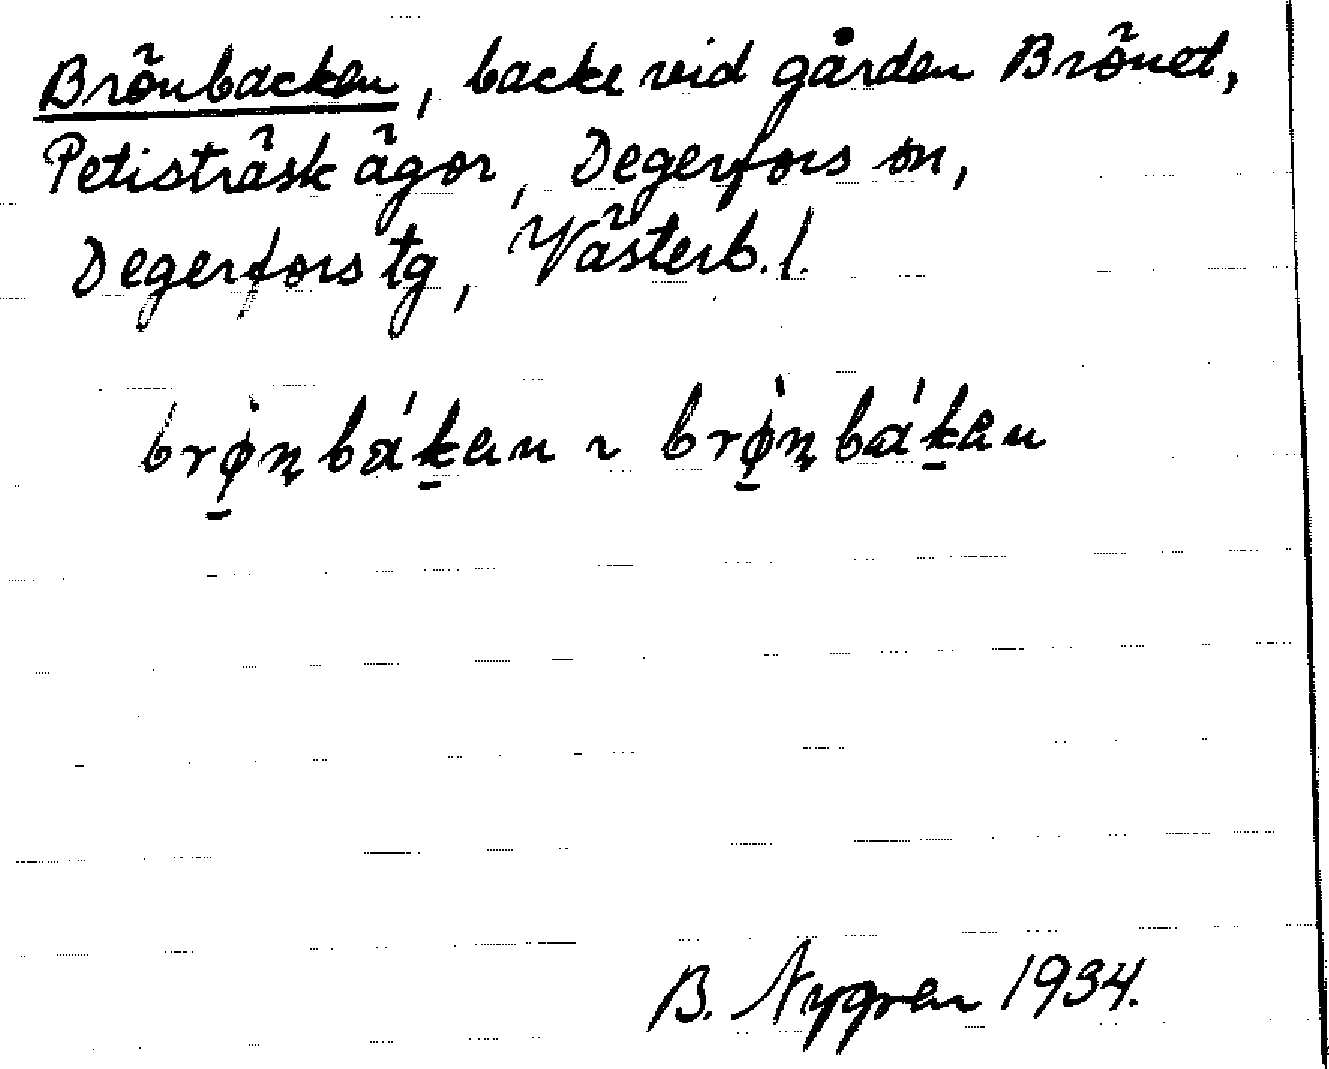 Brönbacken, backe vid gården Brönet,
Petisträsk ägor, Degerfors sn,
Degerfors tg, Västerb. l.
brǿ̱ꞑbáḵen ~ brǿ̱ꞑbáḵen
B. Nygren 1934.